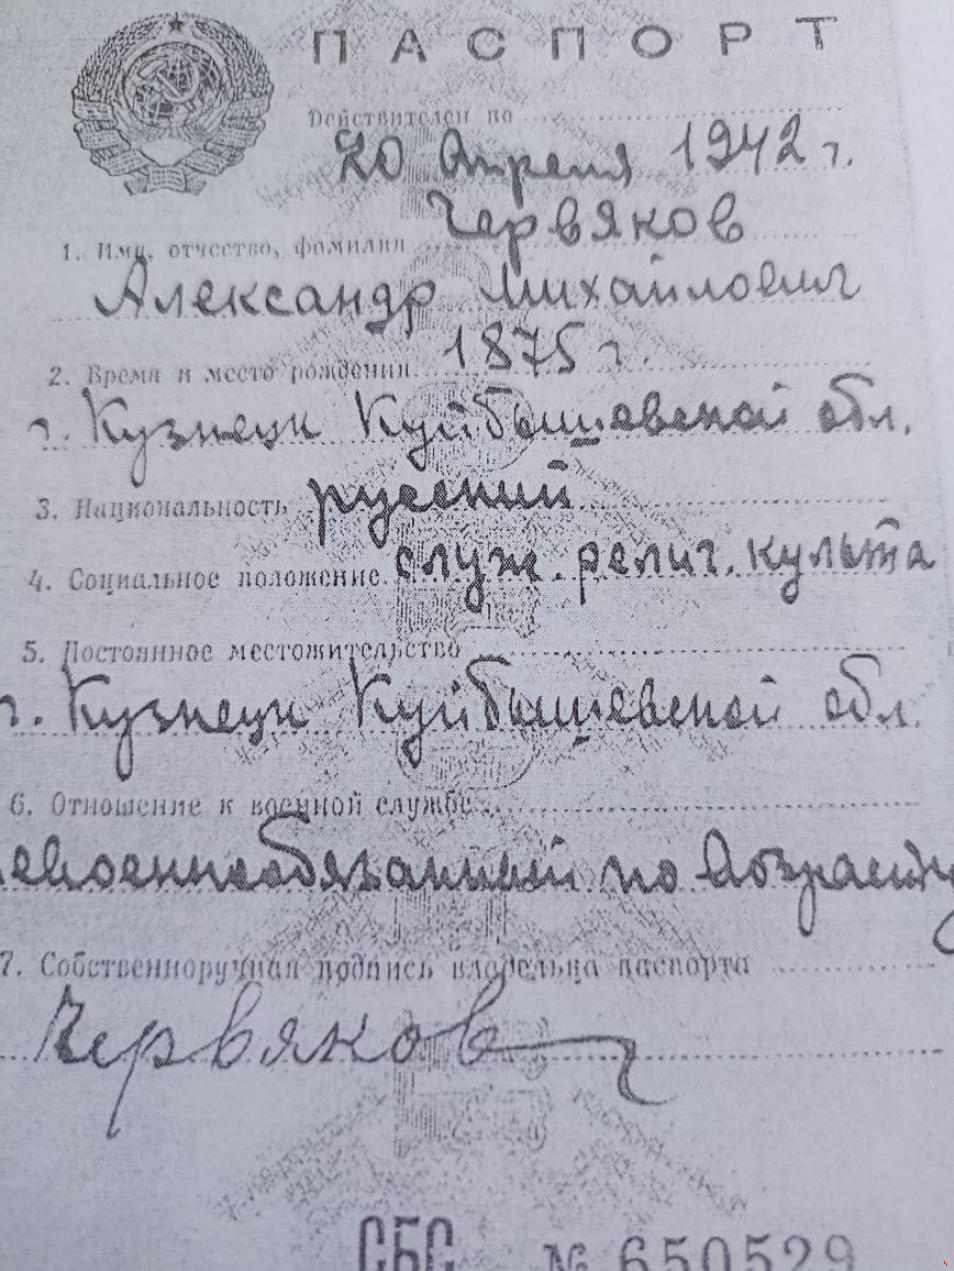 ПАСПОРТ
Действителен по
20 Апреля 1942 г.
1. Имя, отчество, фамилия Червяков
Александр Михайлович
2. Время и место рождения 1875 г.
г. Кузнецк Куйбышевской обл.
3. Национальность русский
4. Социальное положение служ. религ. культа
5. Постоянное местожительство
г. Кузнецк Куйбышевской обл.
6. Отношение к военной службе
невоеннообязанный по возрасту
7. Собственноручная подпись владельца паспорта
Червяков
СБС № 650529